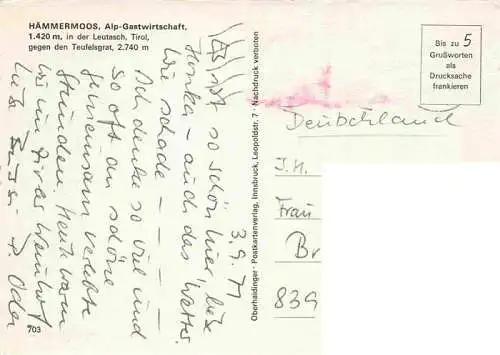 HÄMMERMOOS, Alp-Gastwirtschaft,
1.420 m, in der Leutasch, Tirol,
gegen den Teufelsgrat, 2.740 m
Bis zu 5
Grußworten
als
Drucksache
frankieren
3.9.71
Es ist so schön hier, liebe
- auch das Wetter.
Wie schade - - - -
Ich denke so viel und
so oft an schöne
gemeinsam verlebte
Stunden. Heute waren
wir im
Liebe Grüsse
Oberhaidinger · Postkartenverlag, Innsbruck, Leopoldstr. 7 · Nachdruck verboten
Deutschland
I.H.
Frau
Br
839
703